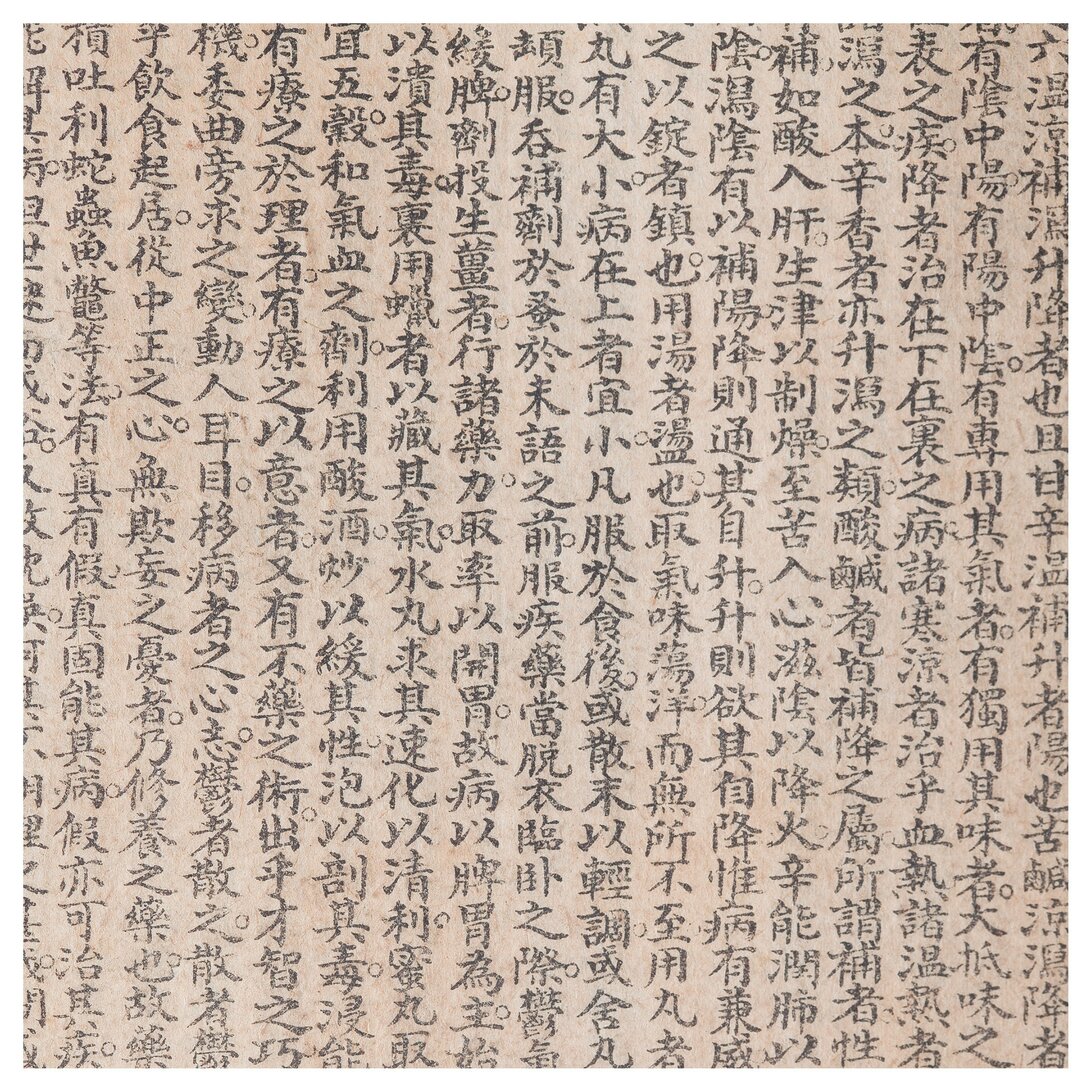 六溫涼補瀉升降者也且甘辛溫補升者陽也苦鹹涼瀉降者
有陰中陽有陽中陰有專用其氣者有獨用其味者大抵味之
表之疾降者治在下在裏之病諸寒涼者治乎血熱諸溫熱者
瀉之本辛香者亦升瀉之類酸鹹者皆補降之屬所謂補者性
補如酸入肝生津以制燥至苦入心滋陰以降火辛能潤肺以
陰瀉陰有以補陽降則通其自升升則欲其自降惟病有兼威
之以錠者鎮也用湯者盪也取氣味蕩洋而無所不至用丸者
丸有大小病在上者宜小凡服於食後或散末以輕調或舍丸
頡服吞補劑於蚤於未語之前服疾藥當脫衣臨卧之際鬱氣
緩脾劑投生薑者行諸藥力取率以開胃故病以脾胃為主始
以潰其毒裏用蠟者以藏其氣水丸求其速化以清利蜜丸取
宜五穀和氣血之劑利用酸酒炒以緩其性泡以剖其毒浸能
有療之於理者有療之以意者又有不藥之術出乎才智之巧
機委曲旁求之變動人耳目移病者之心志鬱者散之散者鬱
乎飲食起居從中正之心無欺妄之憂者乃修養之藥也故藥
積吐利蛇蟲魚鱉等法有真有假真固能其病假亦可治其疾